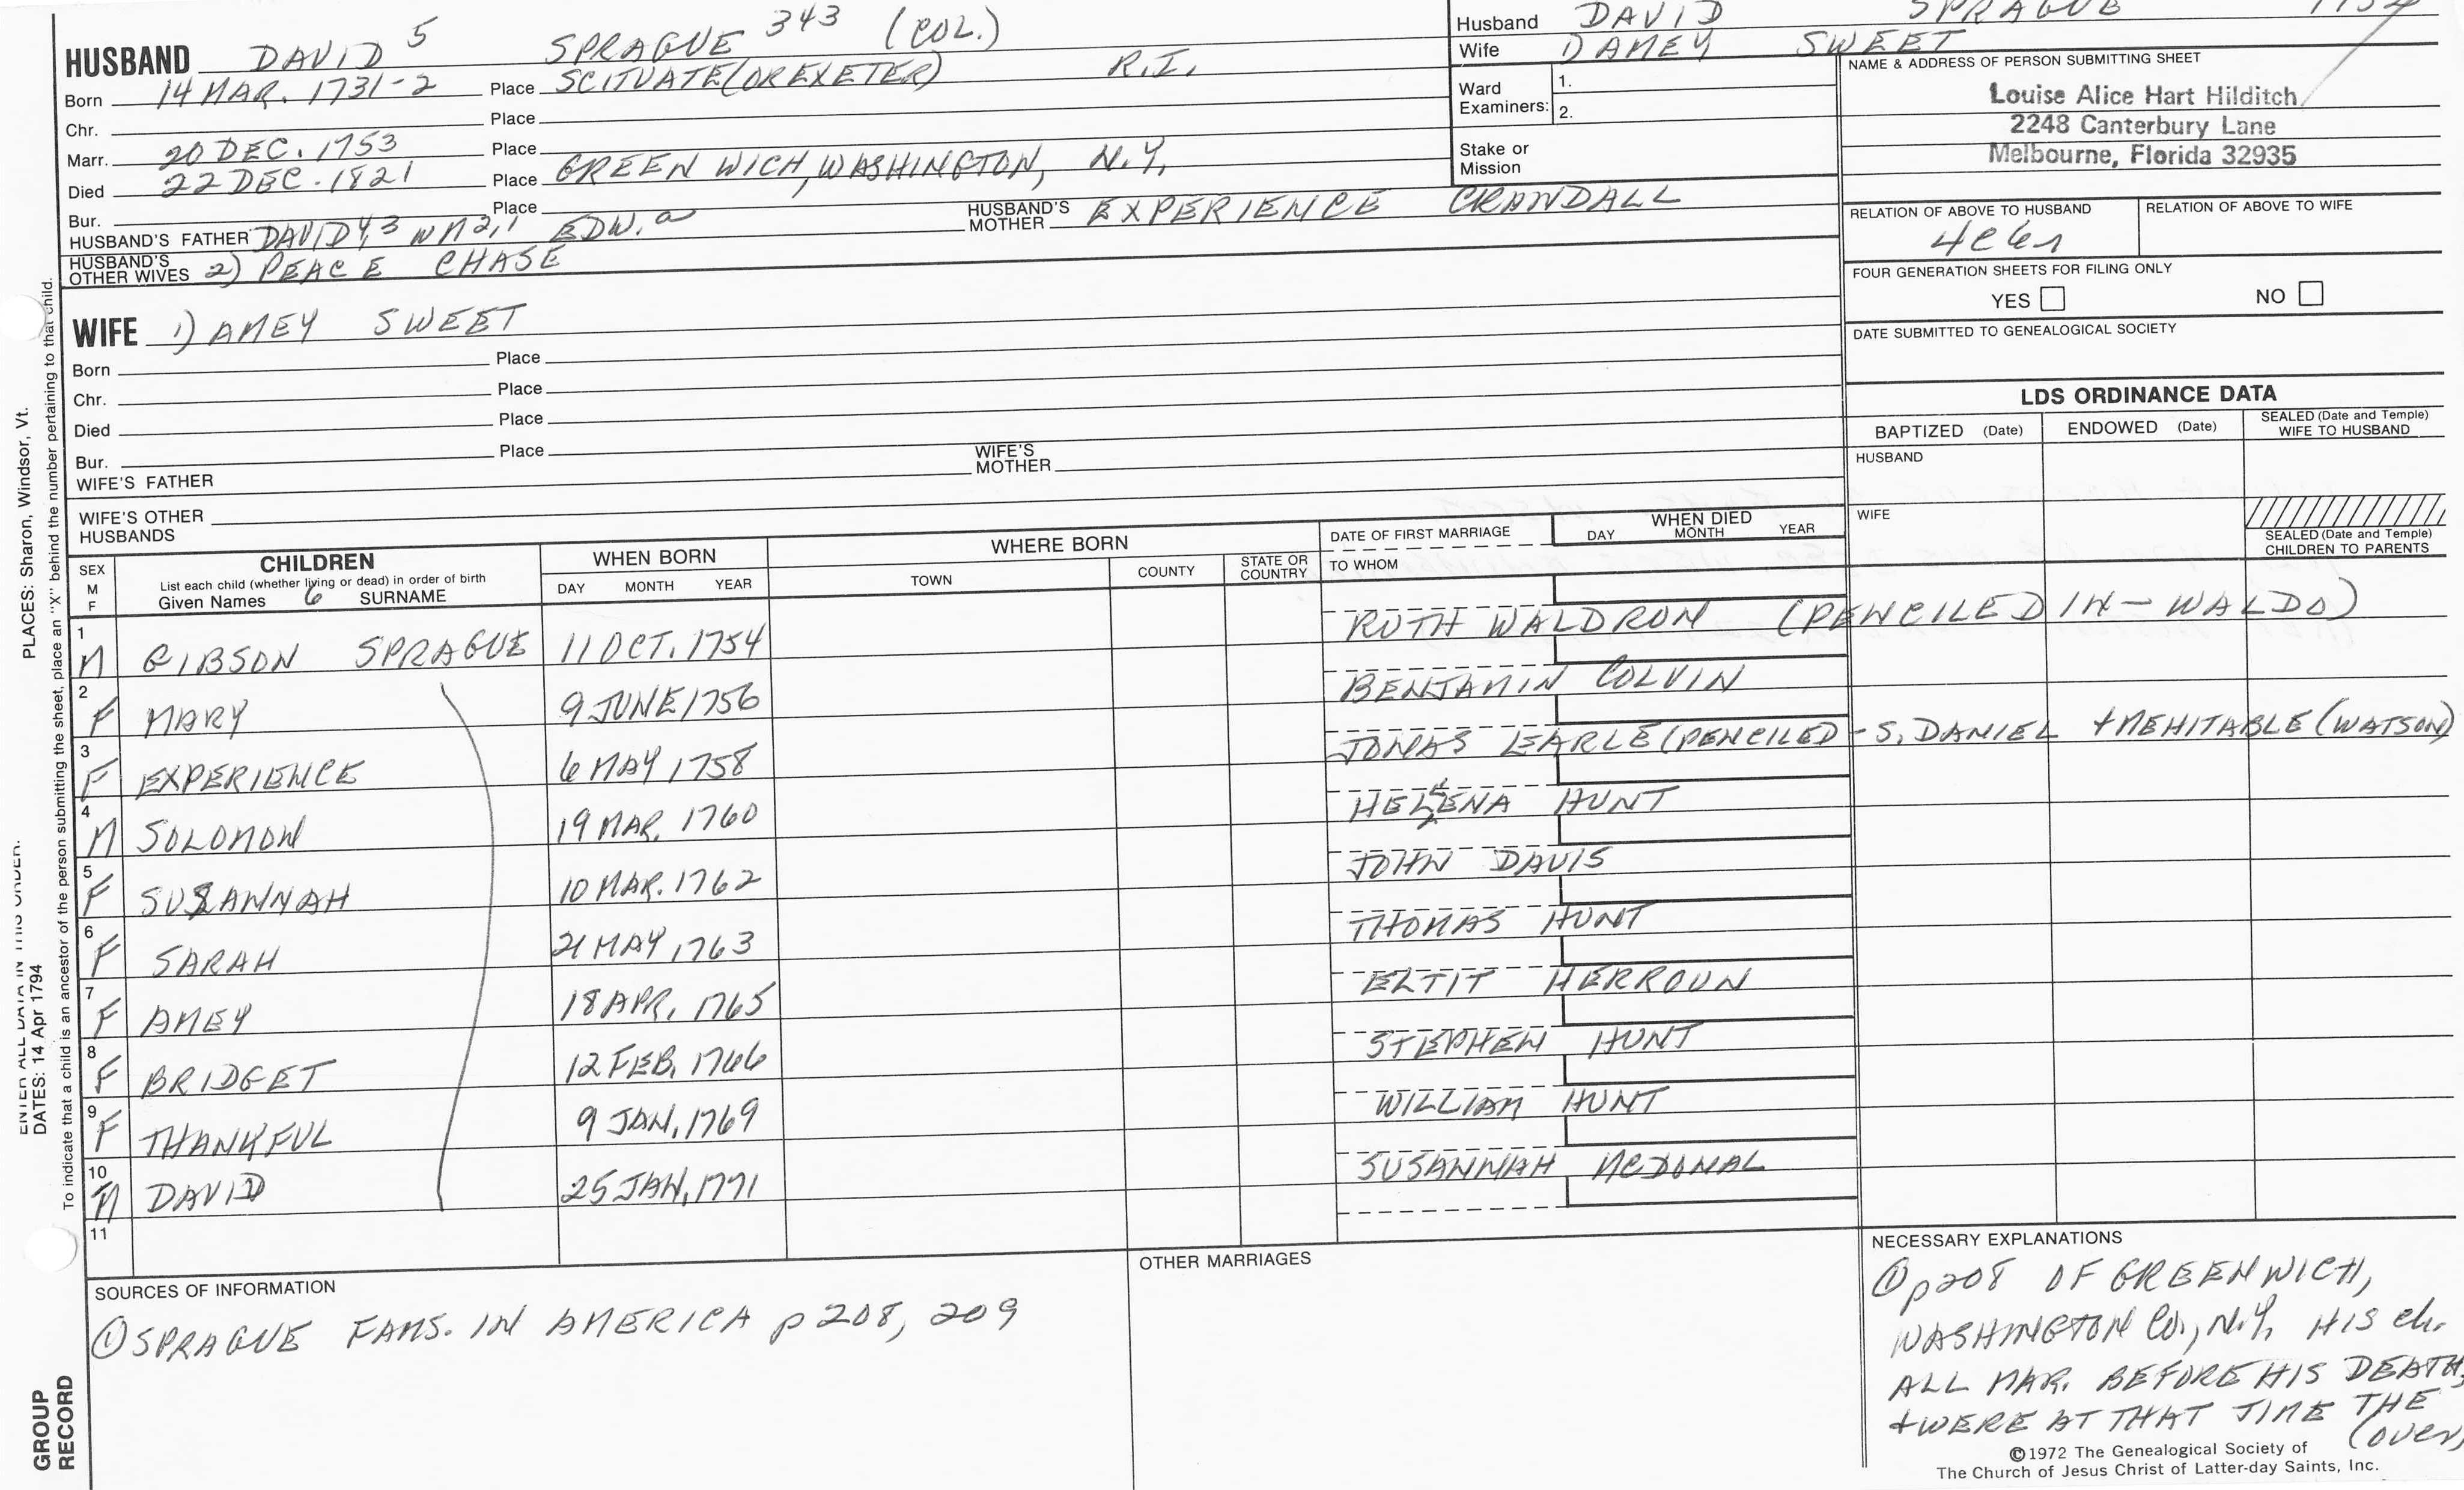 HUSBAND DAVID 5 SPRAGUE 343 (COL.)
Born 14 MAR. 1731-2 Place SCITUATE (OR EXETER) R.I.
Chr. Place
Marr. 20 DEC. 1753 Place
Died 22 DEC. 1821 Place GREENWICH, WASHINGTON, N.Y.
Bur. Place
HUSBAND'S FATHER DAVID 4,3 WM 2,1 EDW. a HUSBAND'S MOTHER EXPERIENCE CRANDALL
HUSBAND'S OTHER WIVES 2) PEACE CHASE
WIFE 1) AMEY SWEET
Born Place
Chr. Place
Died Place
Bur. Place
WIFE'S FATHER WIFE'S MOTHER
WIFE'S OTHER HUSBANDS
Husband DAVID SPRAGUE
Wife DAMEY SWEET
Ward Examiners: 1.
2.
Stake or Mission
NAME & ADDRESS OF PERSON SUBMITTING SHEET
Louise Alice Hart Hilditch
2248 Canterbury Lane
Melbourne, Florida 32935
RELATION OF ABOVE TO HUSBAND RELATION OF ABOVE TO WIFE
FOUR GENERATION SHEETS FOR FILING ONLY
YES NO
DATE SUBMITTED TO GENEALOGICAL SOCIETY
LDS ORDINANCE DATA
BAPTIZED (Date) ENDOWED (Date) SEALED (Date and Temple) WIFE TO HUSBAND
HUSBAND
WIFE
SEALED (Date and Temple) CHILDREN TO PARENTS
SEX M F CHILDREN WHEN BORN WHERE BORN DATE OF FIRST MARRIAGE WHEN DIED
List each child (whether living or dead) in order of birth
Given Names 6 SURNAME DAY MONTH YEAR TOWN COUNTY STATE OR COUNTRY TO WHOM DAY MONTH YEAR
1 M GIBSON SPRAGUE 11 OCT. 1754 RUTH WALDRON (PENCILED IN - WALDO)
2 F MARY 9 JUNE 1756 BENJAMIN COLVIN
3 F EXPERIENCE 6 MAY 1758 JONAS EARLE (PENCILED - S. DANIEL + MEHITABLE (WATSON)
4 M SOLOMON 19 MAR. 1760 HELENA HUNT
5 F SUSANNAH 10 MAR. 1762 JOHN DAVIS
6 F SARAH 21 MAY 1763 THOMAS HUNT
7 F AMEY 18 APR. 1765 ELTIT HERROUN
8 F BRIDGET 12 FEB. 1766 STEPHEN HUNT
9 F THANKFUL 9 JAN. 1769 WILLIAM HUNT
10 M DAVID 25 JAN. 1771 SUSANNAH MCDONAL
11
SOURCES OF INFORMATION
① SPRAGUE FAMS. IN AMERICA p 208, 209
OTHER MARRIAGES
NECESSARY EXPLANATIONS
① p208 OF GREENWICH,
WASHINGTON CO., N.Y. HIS ch.
ALL MAR. BEFORE HIS DEATH,
+ WERE AT THAT TIME THE
(over)
©1972 The Genealogical Society of
The Church of Jesus Christ of Latter-day Saints, Inc.
PLACES: Sharon, Windsor, Vt.
ENTER ALL DATA IN THIS ORDER:
DATES: 14 Apr 1794
To indicate that a child is an ancestor of the person submitting the sheet, place an "X" behind the number pertaining to that child.
GROUP
RECORD